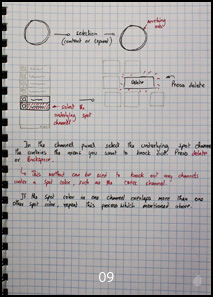 selection
(contract or expand)
Delete
Press delete
select the
underlying spot
channel
In the channel panel select the underlying spot channel
the contains the areas you want to knock out. Press delete
or Backspace.
This method can be used to knock out any channels
under a spot color, such as the CMYK channel.
If the spot color in one channel overlaps more than one
other spot color, repeat this process which mentioned above.
09